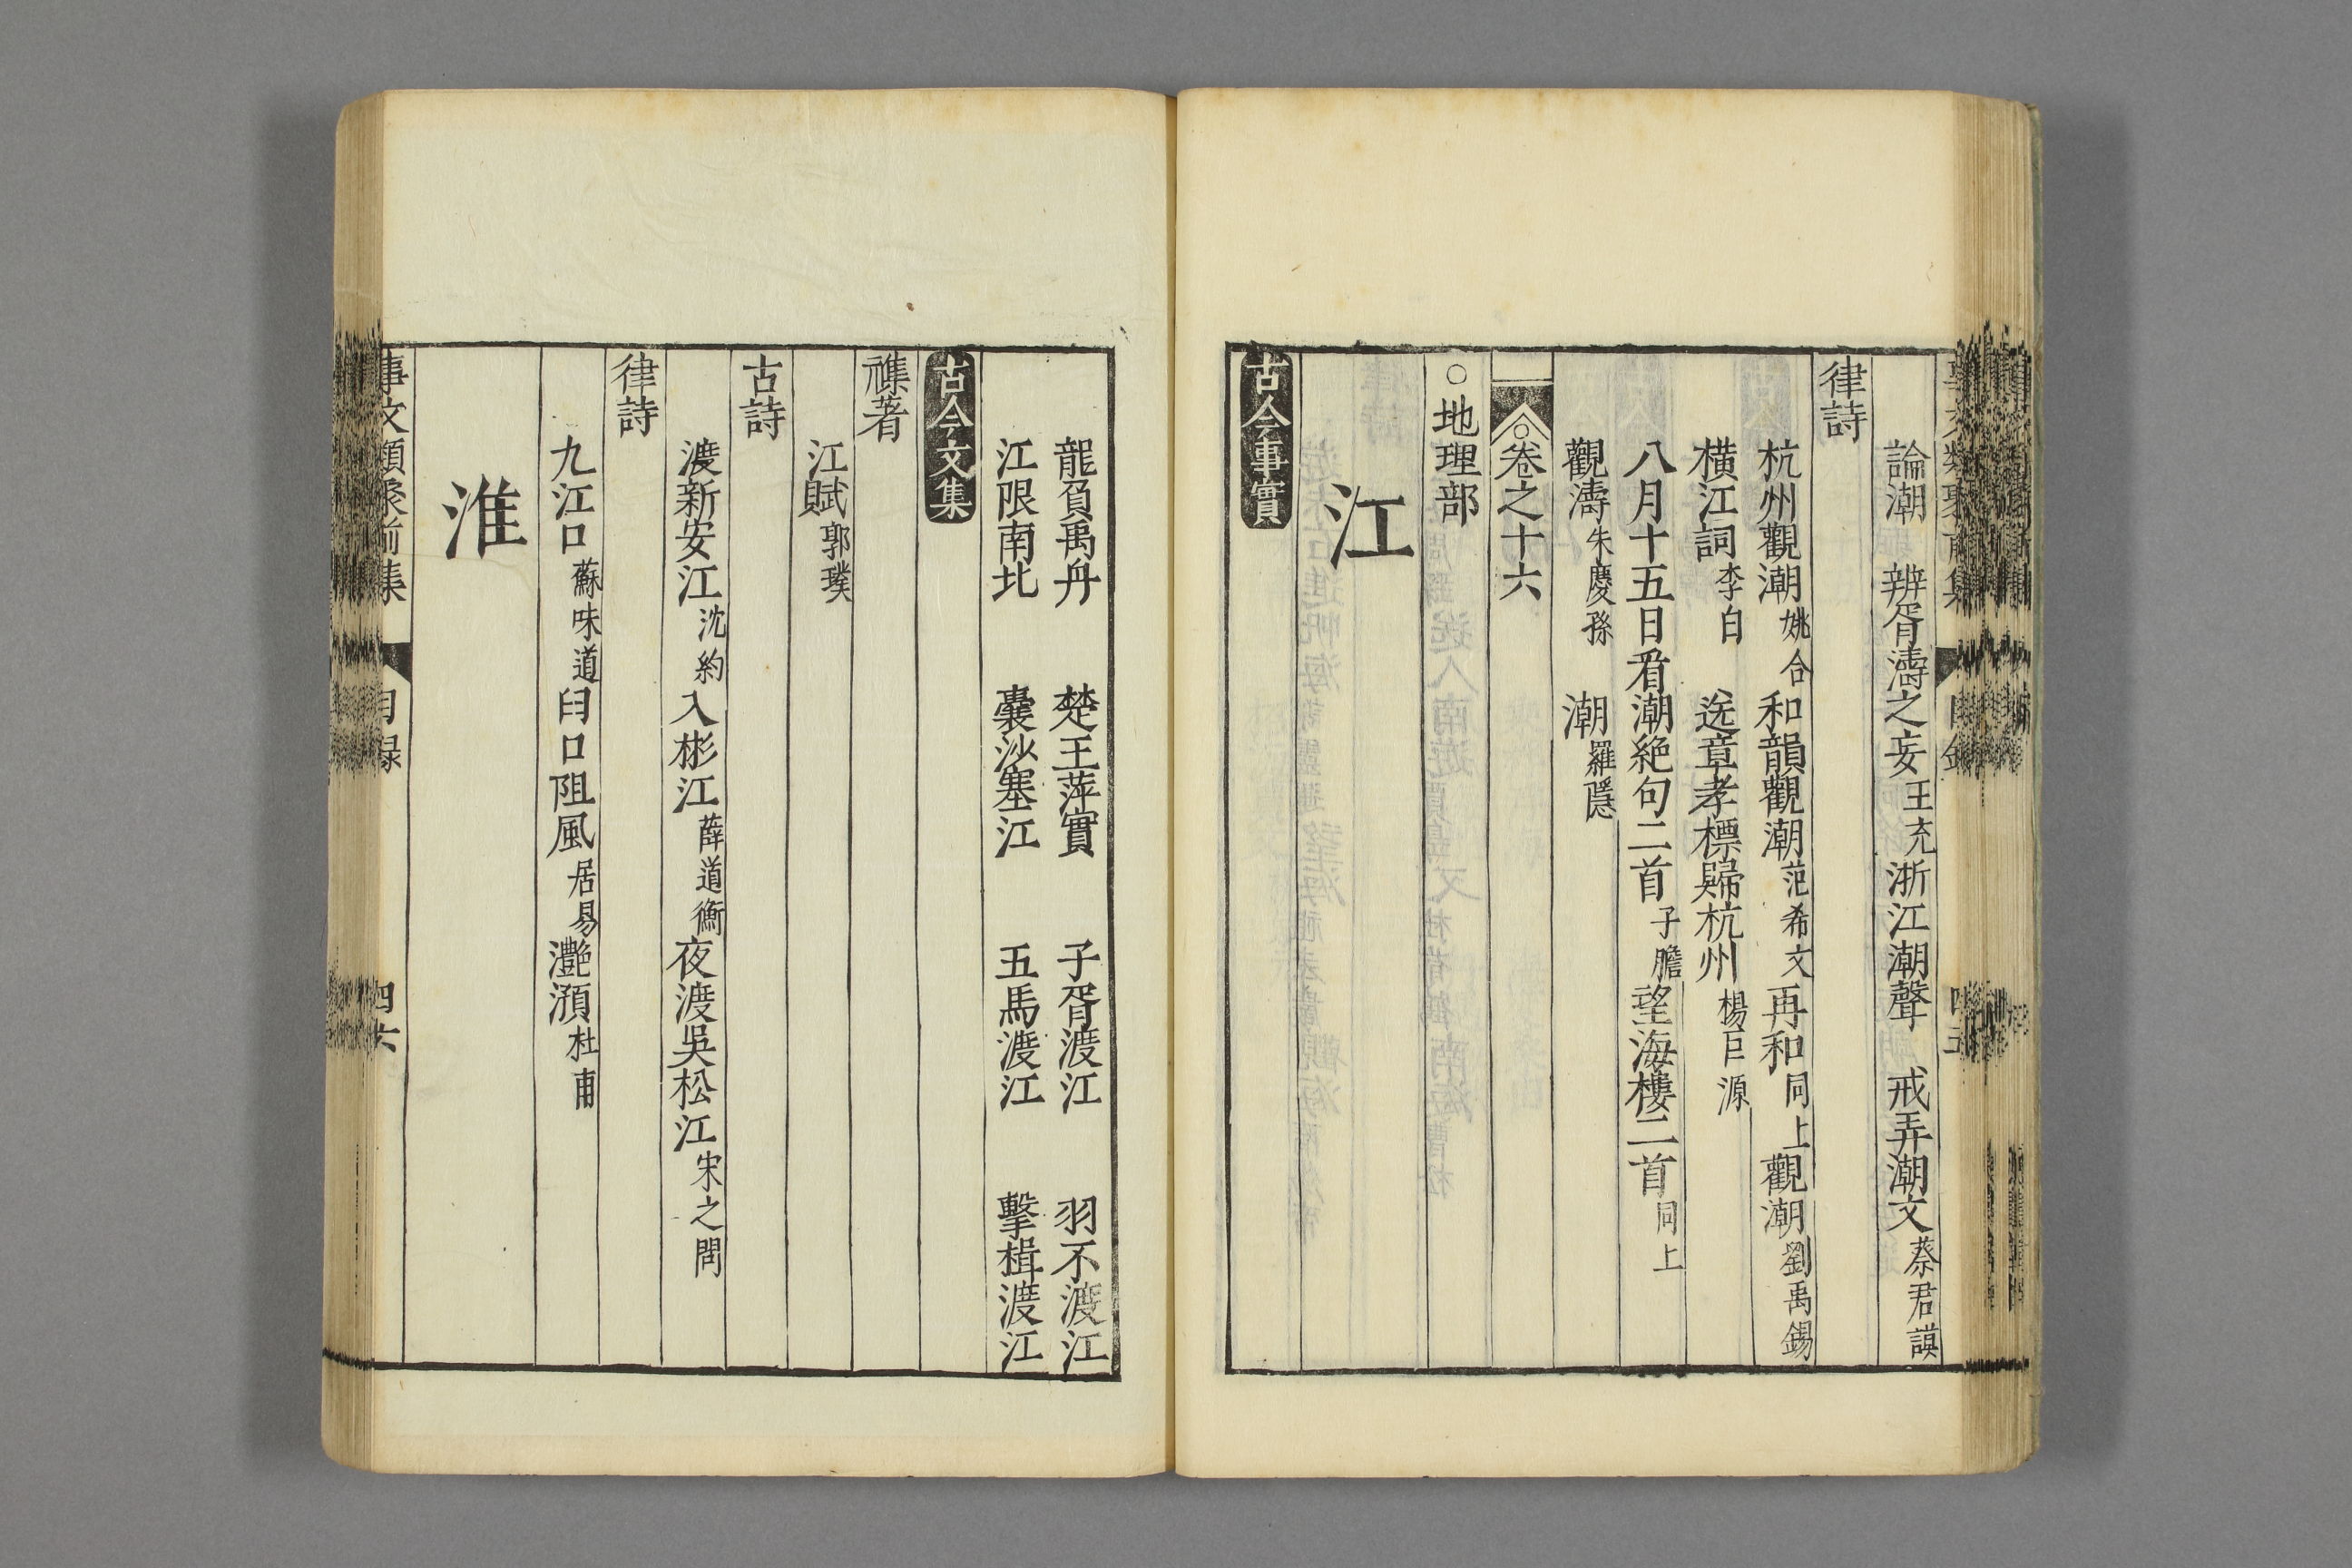 論潮　辨胥濤之妄王充　浙江潮聲　戒弄潮文蔡君謨
律詩
杭州觀潮姚合　和韻觀潮范希文　再和同上　觀潮劉禹錫
横江詞李白　送章孝標歸杭州楊巨源
八月十五日看潮絶句二首子瞻　望海樓二首同上
觀濤朱慶孫　潮羅隱
卷之十六
○地理部
江
古今事實
龍負禹舟　楚王萍實　子胥渡江　羽不渡江
江限南北　囊沙塞江　五馬渡江　擊楫渡江
古今文集
襍著
江賦郭璞
古詩
渡新安江沈約　入彬江薛道衡　夜渡吳松江宋之問
律詩
九江口蘇味道　臼口阻風居易　灧澦杜甫
淮
事文類聚前集　目録　四六